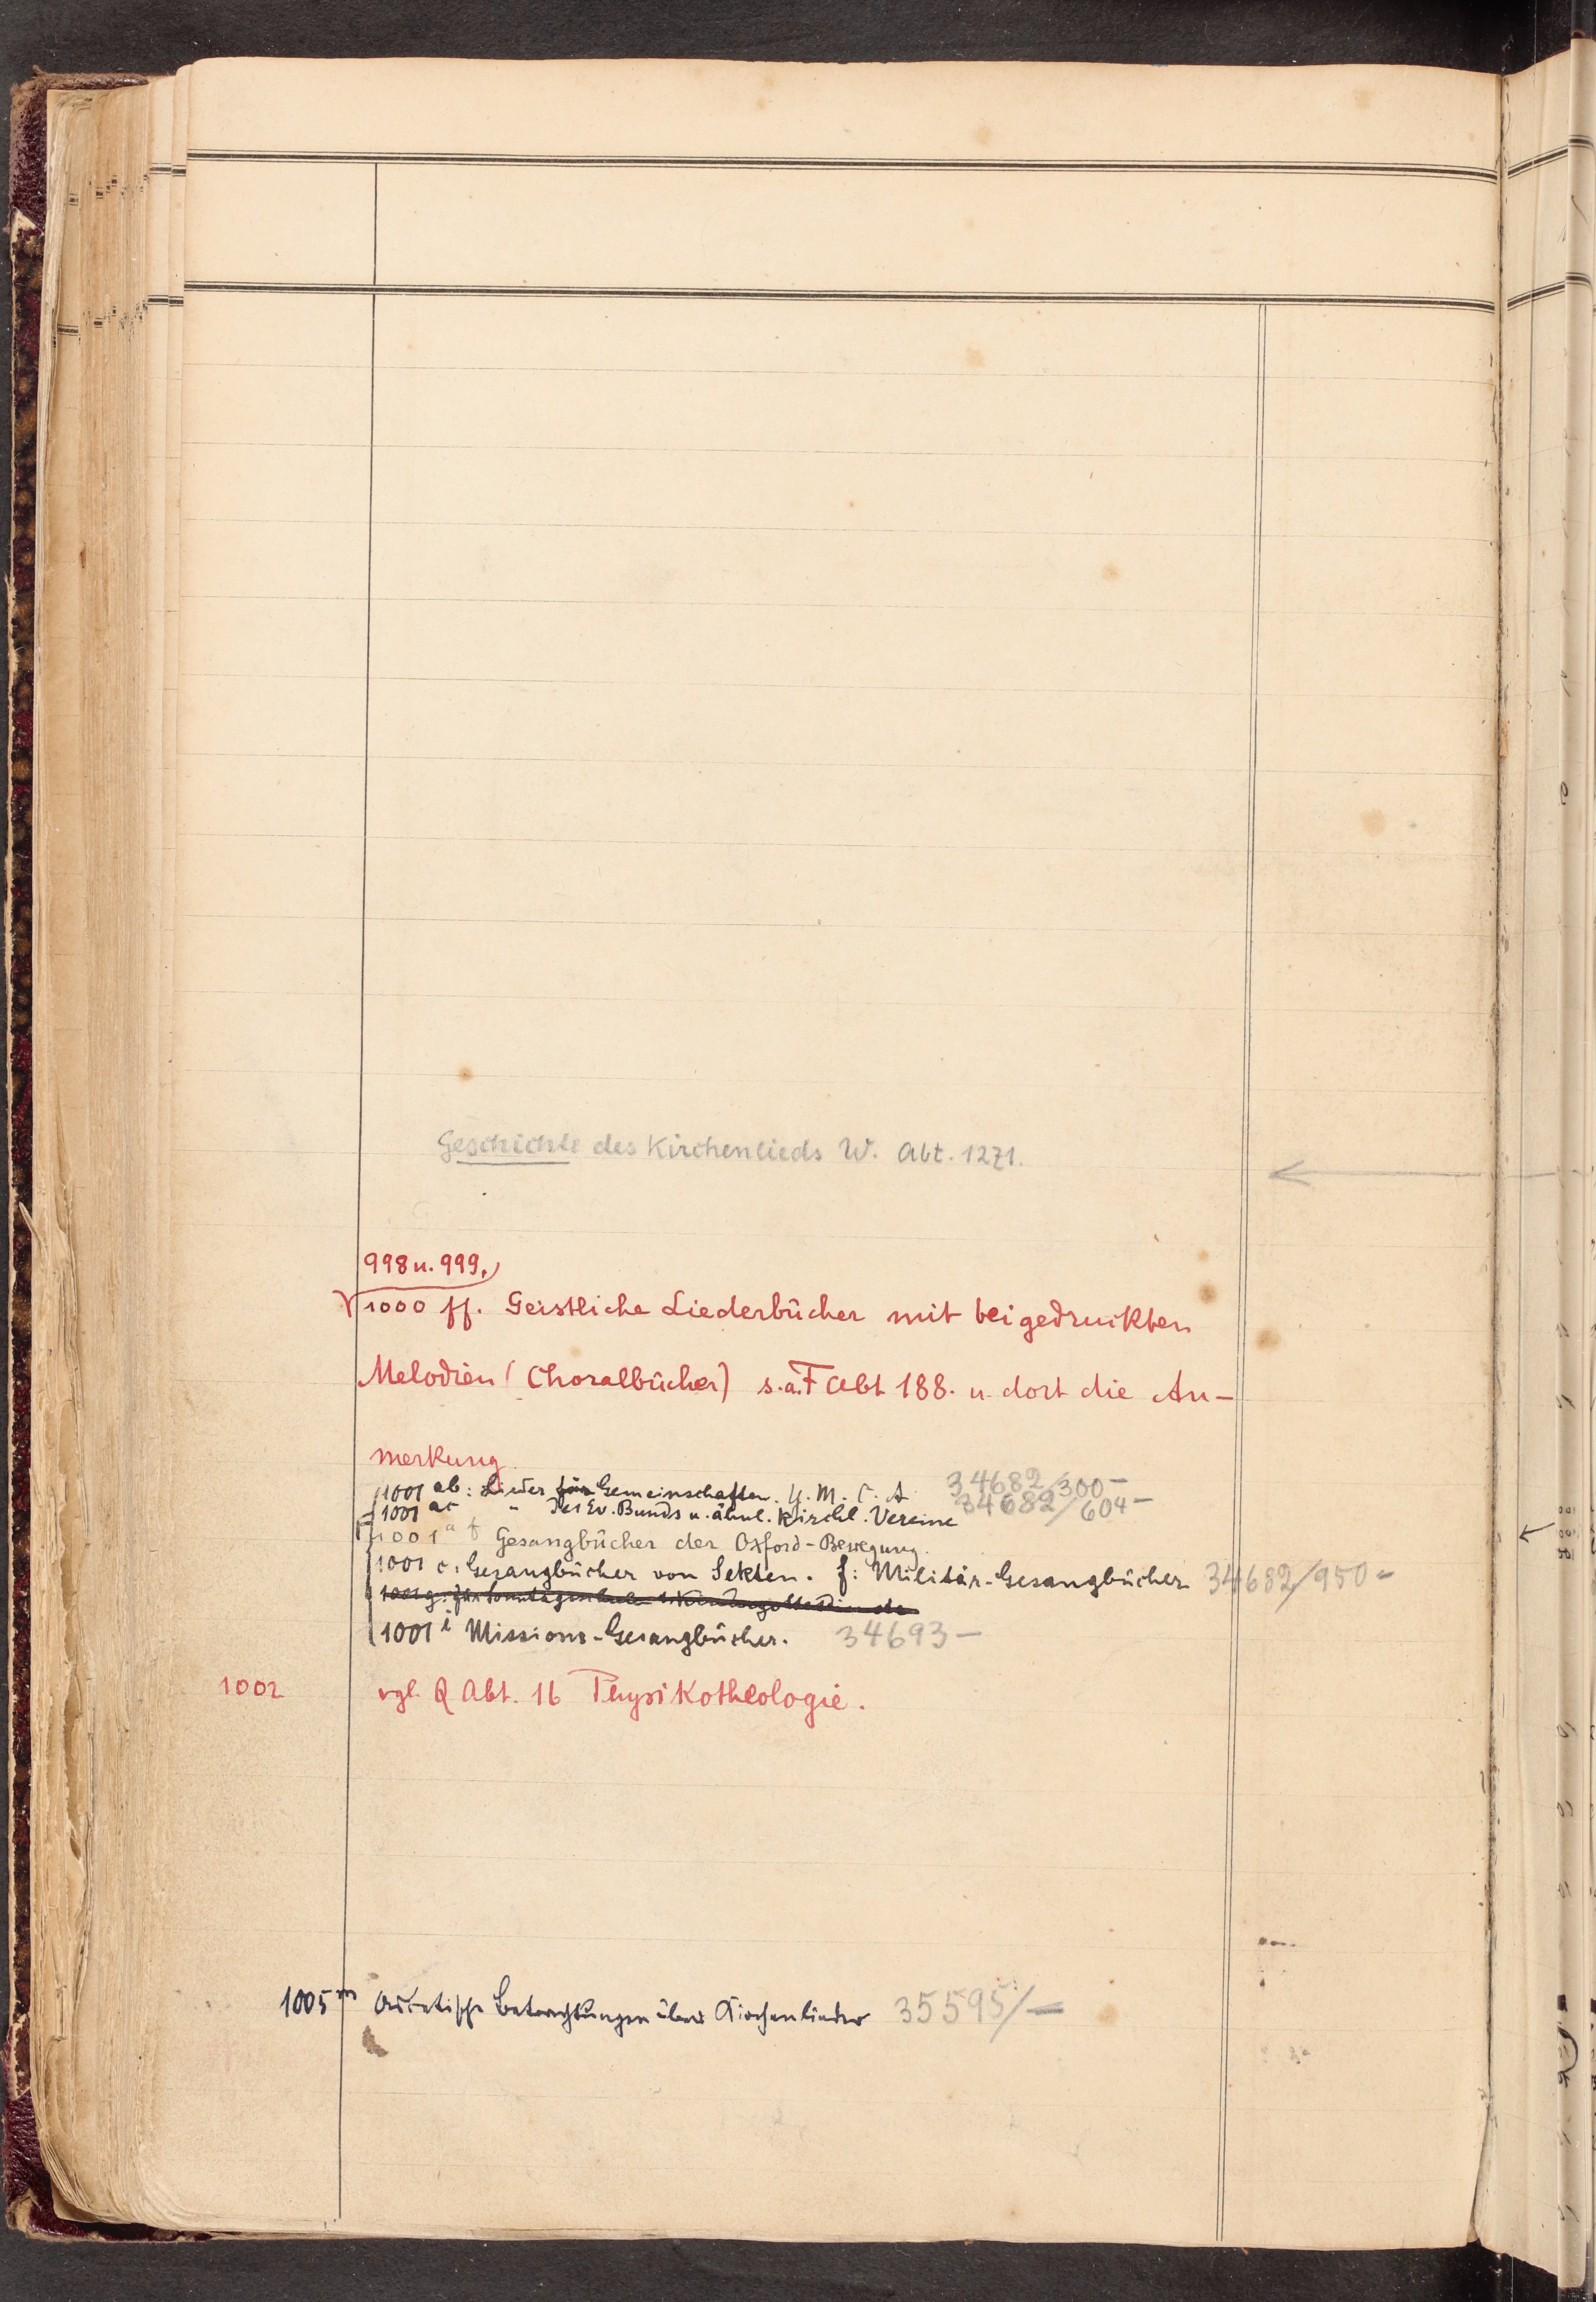 Geschichte des Kirchenlieds W. Abt. 1271.
998 u. 999,
1000 ff. Geistliche Liederbücher mit beigedruckten
Melodien (Choralbücher) s. a. F Abt 188. u. dort die An-
merkung.
1001 ab: Lieder für Gemeinschaften. Y. M. C. A 34682/300-
1001 ac " des Ev. Bunds u. ähnl. kirchl. Vereine 34682/604-
1001 a f Gesangbücher der Oxford-Bewegung.
1001 c: Gesangbücher von Sekten. f: Militär-Gesangbücher 34682/950-
1001 g: für Sonntagsschule
1001 i Missions-Gesangbücher. 34693-
1002 vgl. Q Abt. 16 Physikotheologie.
1005 m Ascetische Betrachtungen über Kirchenlieder 35595/-